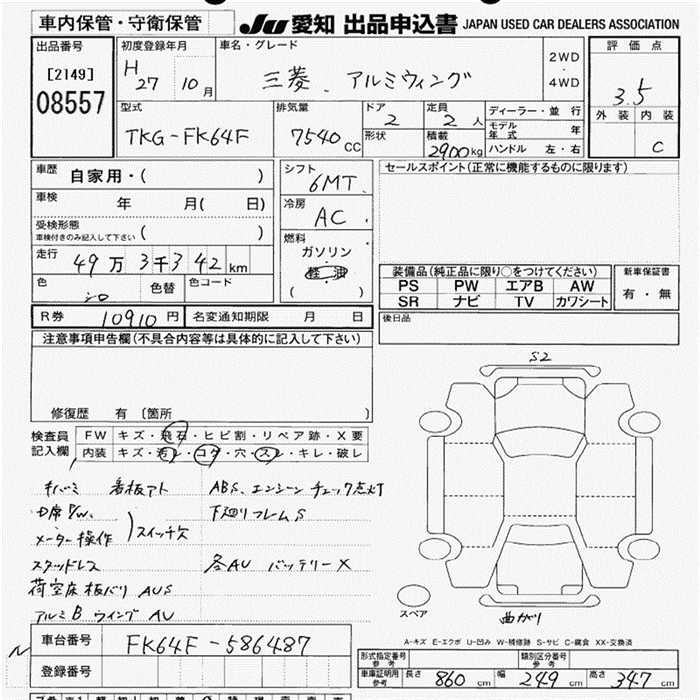 車内保管・守衛保管
JU 愛知 出品申込書 JAPAN USED CAR DEALERS ASSOCIATION
出品番号
[2149]
08557
初度登録年月
H 27 10月
車名・グレード
三菱 . アルミウィング
2WD
・
4WD
評価点
3.5
外装 内装
C
型式
TKG-FK64F
排気量
7540cc
ドア
2
形状
定員
2人
積載
2900kg
ディーラー・並行
モデル年式 年
ハンドル 左・右
車歴
自家用・( )
車検
年 月( 日)
受検形態
車検付きのみ記入して下さい ( )
走行
49万3千342km
色
シロ
色替
色コード
シフト
6MT.
冷房
AC
燃料
ガソリン
軽油
( )
セールスポイント(正常に機能するものに限ります)
装備品(純正品に限り〇をつけてください)
PS PW エアB AW
SR ナビ TV カワシート
新車保証書
有・無
R券 10910円
名変通知期限 月 日
後日品
注意事項申告欄(不具合内容等は具体的に記入して下さい)
修復歴 有 〔箇所 〕
検査員記入欄
FW キズ・飛石・ヒビ割・リペア跡・X要
内装 キズ・汚レ・コゲ・穴・スレ・キレ・破レ
キバミ 看板アト ABS、エンジンチェック点灯
中席P/W、
メーター操作
)スイッチ欠
下廻りフレームS
スタッドレス 各AU バッテリーX
荷室床板バリ AUS
アルミB ウイング AU
S2
スペア
曲がり
A-キズ E-エクボ U-凹み W-補修跡 S-サビ C-腐食 XX-交換済
車台番号 FK64F-586487
登録番号
形式指定番号
参考
類別区分番号
参考
車庫証明用
参考
長さ 860cm 幅 249cm 高さ 347cm